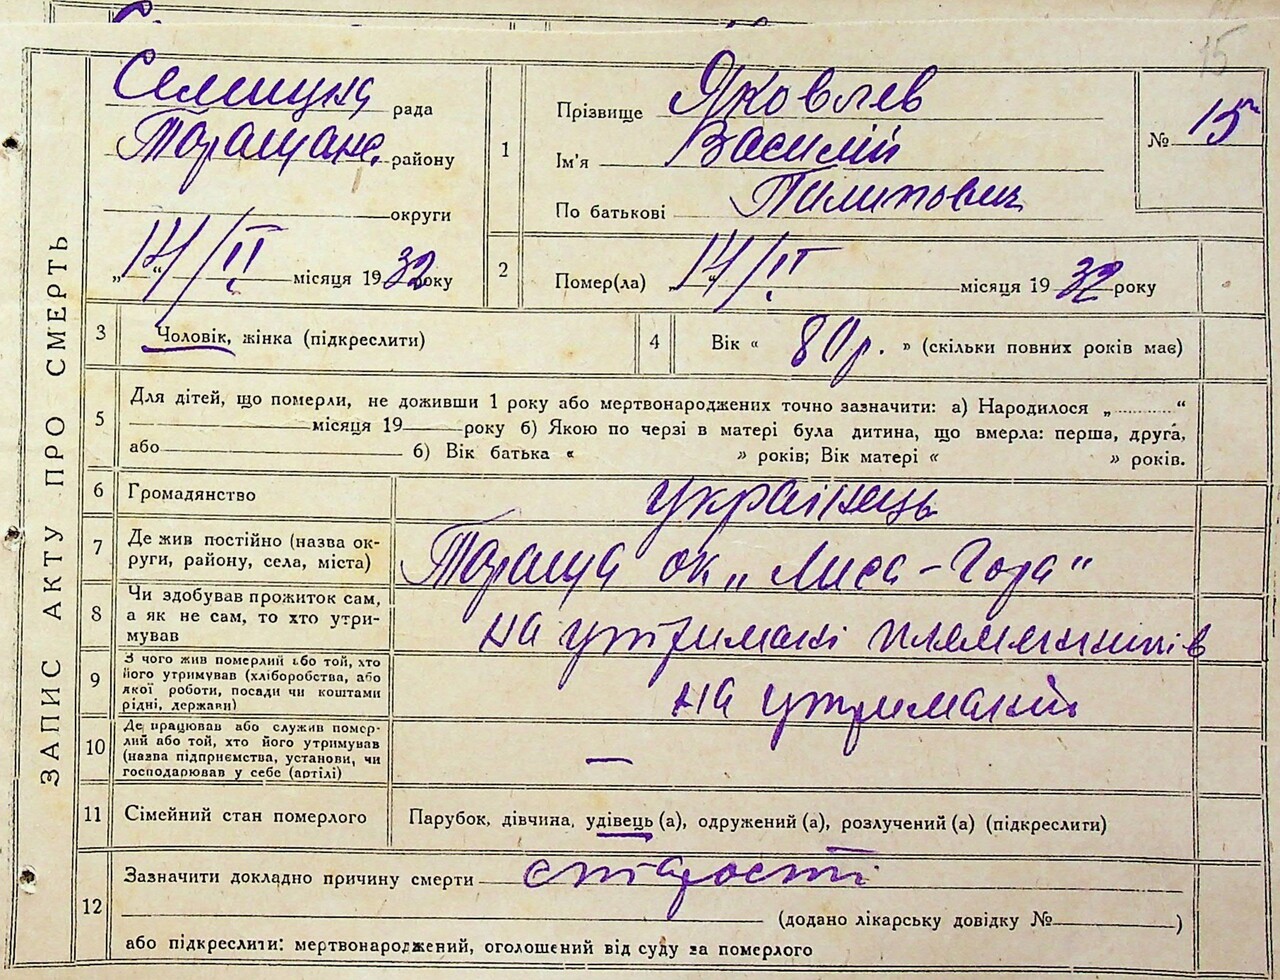 15
ЗАПИС АКТУ ПРО СМЕРТЬ
Селищна рада
Таращанс. району
округи
„14/II“ місяця 1932 року
1
Прізвище Яковлев
Ім'я Василій
По батькові Пилипович
№ 15
2
Помер(ла) „14/II“ місяця 1932 року
3 Чоловік, жінка (підкреслити)
4 Вік « 80 р. » (скільки повних років має)
5
Для дітей, що померли, не доживши 1 року або мертвонароджених точно зазначити: а) Народилося „..........“
місяця 19 року б) Якою по черзі в матері була дитина, що вмерла: перша, друга,
або б) Вік батька « » років; Вік матері « » років.
6 Громадянство українець
7 Де жив постійно (назва ок-
руги, району, села, міста) Тараща ок „Лиса-Гора“
8 Чи здобував прожиток сам,
а як не сам, то хто утри-
мував на утримані племенників
9 З чого жив померлий або той, хто
його утримував (хліборобства, або
якої роботи, посади чи коштами
рідні, держави) на утримании
10 Де працював або служив помер-
лий або той, хто його утримував
(назва підприємства, установи, чи
господарював у себе (артілі) —
11 Сімейний стан померлого Парубок, дівчина, удівець (а), одружений (а), розлучений (а) (підкреслити)
12
Зазначити докладно причину смерти старості
(додано лікарську довідку № )
або підкреслити: мертвонароджений, оголошений від суду за померлого